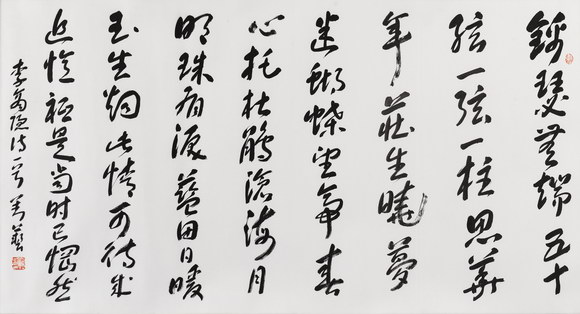 錦瑟無端五十
弦一弦一柱思華
年莊生曉夢
迷蝴蝶望帝春
心托杜鵑滄海月
明珠有淚藍田日暖
玉生烟此情可待成
追憶祗是當時已惘然
李商隐詩一首